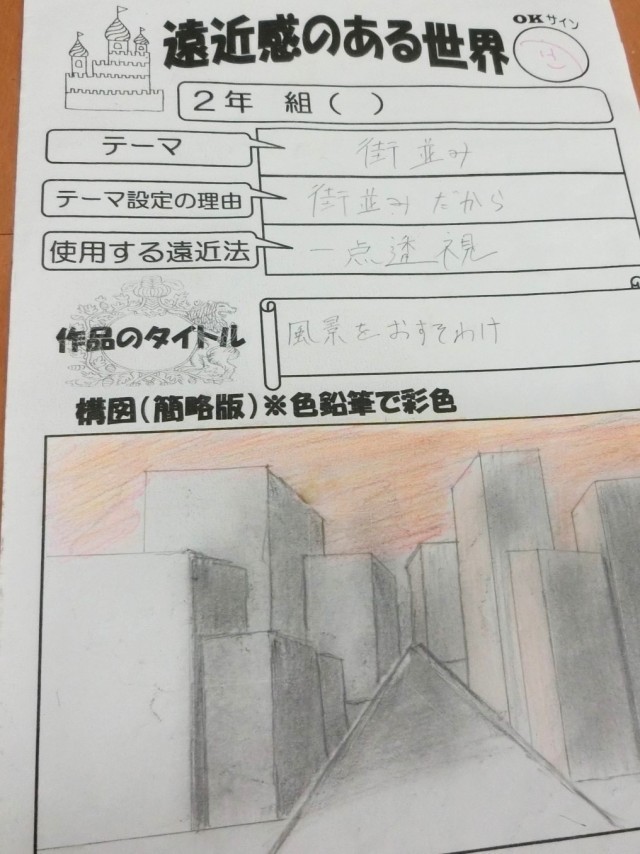 遠近感のある世界
OKサイン
2年 組( )
テーマ
街並み
テーマ設定の理由
街並みだから
使用する遠近法
一点透視
作品のタイトル
風景をおすそわけ
構図(簡略版)※色鉛筆で彩色